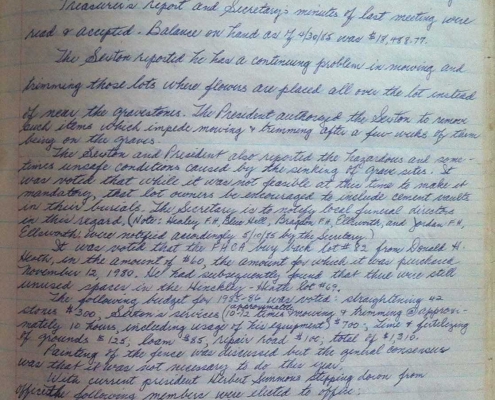 Treasurer's report and Secretary's minutes of last meeting were
read & accepted. Balance on hand as of 4/30/85 was $18,488.77.
The Sexton reported he has a continuing problem in mowing and
trimming those lots where flowers are placed all over the lot instead
of near the gravestones. The President authorized the Sexton to remove
such items which impede mowing & trimming after a few weeks of them
being on the graves.
The Sexton and President also reported the hazardous and some-
times unsafe conditions caused by the sinking of grave sites. It
was noted that while it was not feasible at this time to make it
mandatory, that lot owners be encouraged to include cement vaults
in their burials. The Secretary is to notify local funeral directors
in this regard. (Note: Hinkley F.H. Blue Hill, F.H. Ellsworth, and Jordan F.H.,
Ellsworth were notified accordingly 5/10/85 by the Secretary.)
It was voted that the FHCA buy back lot #82 from Donald H.
Heath, in the amount of $60, the amount for which it was purchased
November 12, 1980. He had subsequently found that there were still
unused spaces in the Hinckley-Heath lot #69.
The following budget for 1985-86 was voted: straightening 42
stones $300, Sexton's services (approximately 10-12 times mowing & trimming @ approxi-
mately 10 hours, including usage of his equipment) $700, lime & fertilizing
of grounds $125, loam $85, repair road $100, total of $1,310.
Painting of the fence was discussed but the general consensus
was that it was not necessary to do this year.
With current president Herbert Simmons stepping down from
office the following members were elected to office: